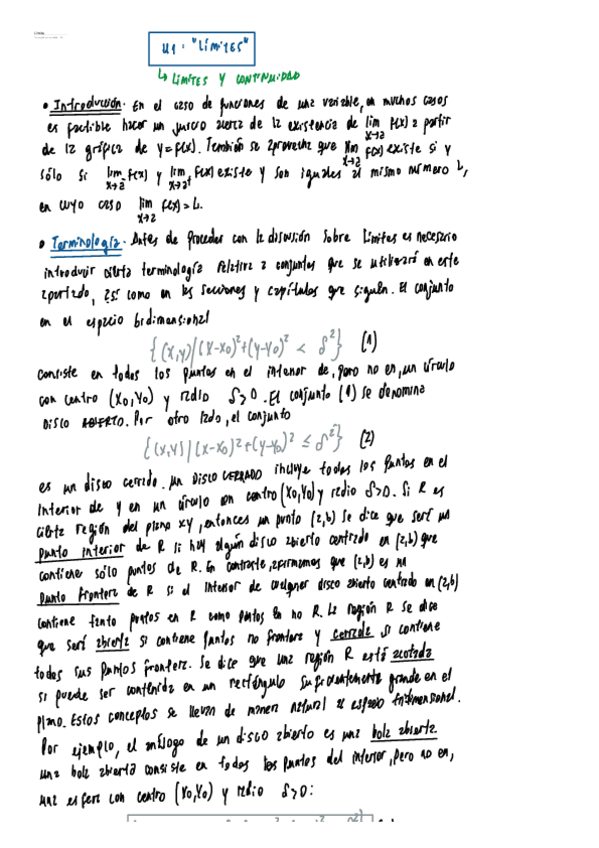 U1: "Límites"
↳ LIMITES Y CONTINUIDAD
• Introducción. En el caso de funciones de una variable, en muchos casos
es factible hacer un juicio acerca de la existencia de lim x→a f(x) a partir
de la gráfica de y=f(x). También se aprovecha que lim x→a f(x) existe si y
sólo si lim x→a⁻ f(x) y lim x→a⁺ f(x) existe y son iguales al mismo número L,
en cuyo caso lim x→a f(x)=L.
• Terminología. Antes de proceder con la discusión sobre límites es necesario
introducir cierta terminología relativa a conjuntos que se utilizará en este
apartado, así como en las secciones y capítulos que siguen. El conjunto
en el espacio bidimensional
{(x,y)/(x-x₀)²+(y-y₀)² < δ²} (1)
consiste en todos los puntos en el interior de, pero no en, un círculo
con centro (x₀,y₀) y radio δ>0. El conjunto (1) se denomina
DISCO ABIERTO. Por otro lado, el conjunto
{(x,y)|(x-x₀)²+(y-y₀)² ≤ δ²} (2)
es un disco cerrado. Un DISCO CERRADO incluye todos los puntos en el
interior de y en un círculo con centro (x₀,y₀) y radio δ>0. Si R es
cierta región del plano xy, entonces un punto (a,b) se dice que será un
punto interior de R si hay algún disco abierto centrado en (a,b) que
contiene sólo puntos de R. En contraste, afirmamos que (a,b) es un
punto frontera de R si el interior de cualquier disco abierto centrado en (a,b)
contiene tanto puntos en R como puntos en no R. La región R se dice
que será abierta si contiene puntos no frontera y cerrada si contiene
todos sus puntos frontera. Se dice que una región R está acotada
si puede ser contenida en un rectángulo suficientemente grande en el
plano. Estos conceptos se llevan de manera natural al espacio tridimensional.
Por ejemplo, el análogo de un disco abierto es una bola abierta.
una bola abierta consiste en todos los puntos del interior, pero no en,
una esfera con centro (x₀,y₀) y radio δ>0: